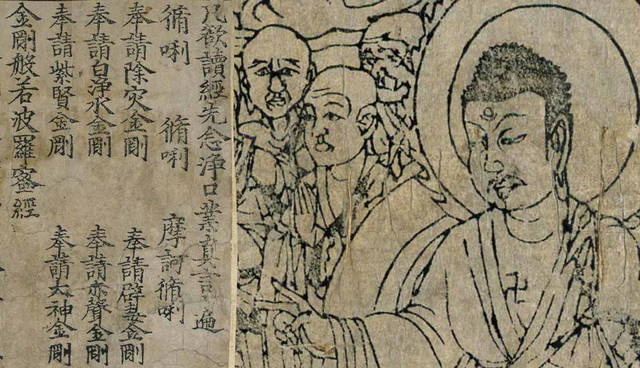 凡欲讀經先念淨口業真言遍
脩唎 脩唎 摩訶脩唎
奉請除灾金剛 奉請辟毒金剛
奉請白淨水金剛 奉請赤聲金剛
奉請紫賢金剛 奉請大神金剛
金剛般若波羅蜜經